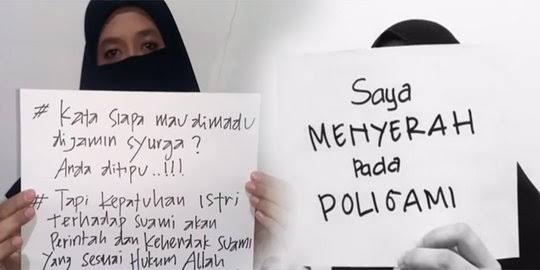 # Kata siapa mau dimadu
dijamin syurga ?
Anda ditipu ..!!!
# Tapi Kepatuhan Istri
terhadap suami akan
Perintah dan Kehendak Suami
Yang sesuai Hukum Allah
Saya
MENYERAH
Pada
POLIGAMI